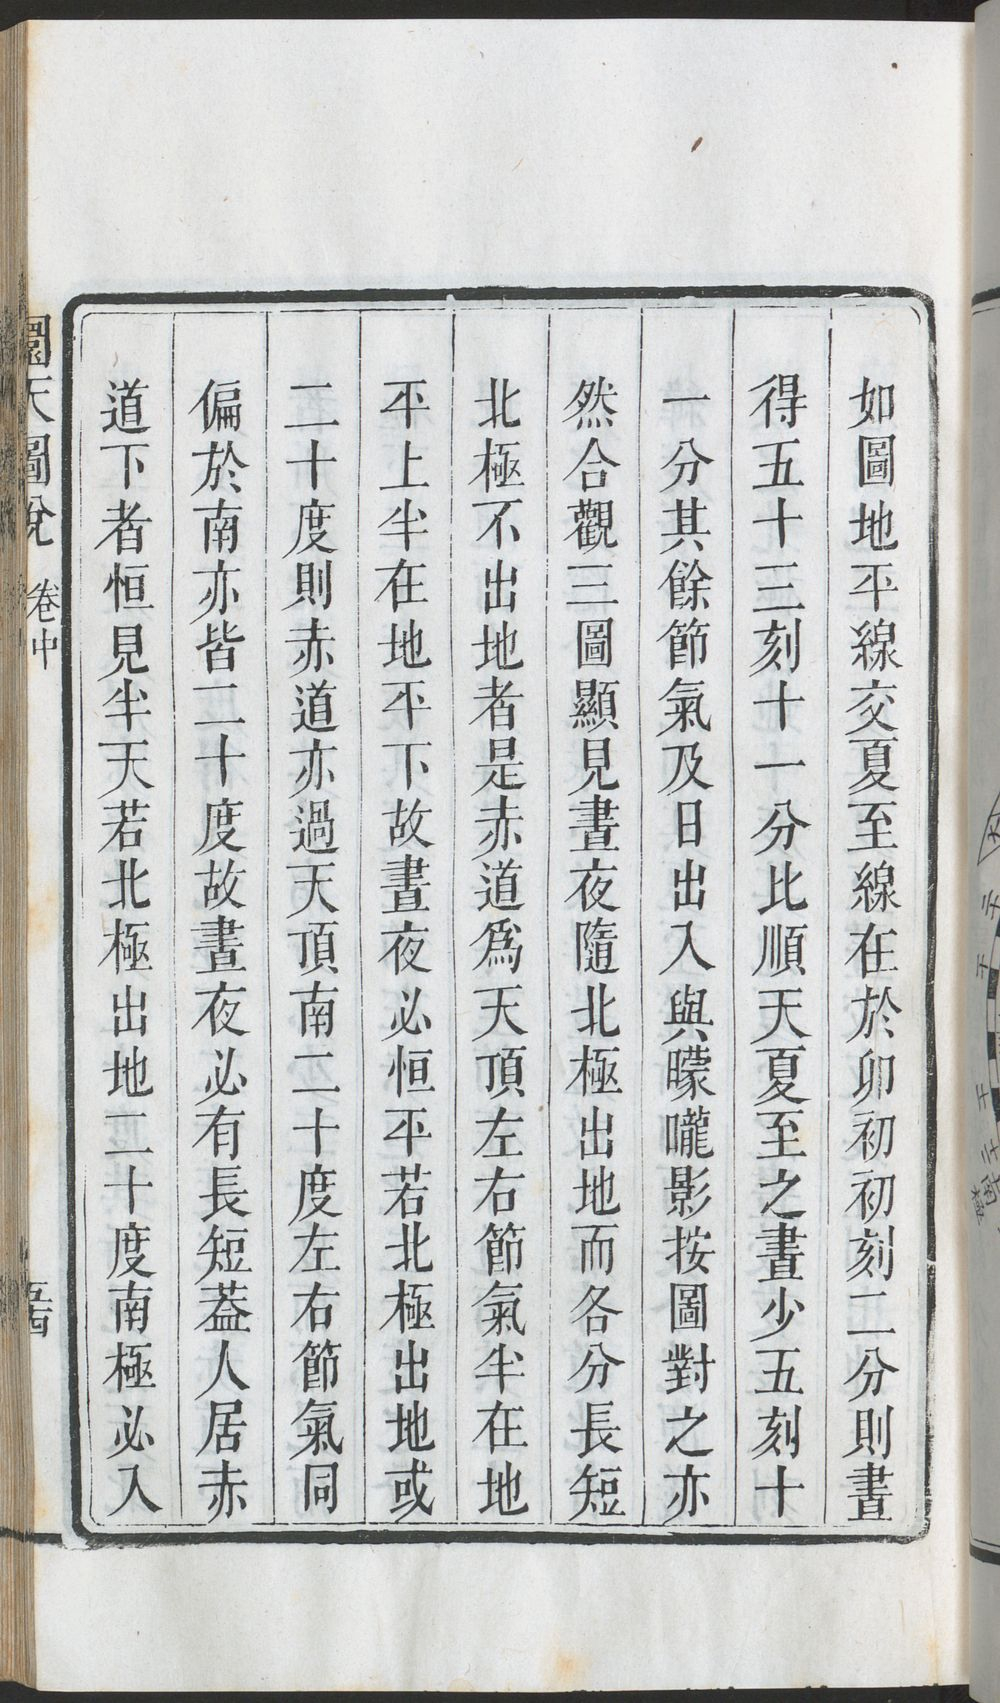 如圖地平線交夏至線在於卯初初刻二分則晝
得五十三刻十一分比順天夏至之晝少五刻十
一分其餘節氣及日出入與曚曨影按圖對之亦
然合觀三圖顯見晝夜隨北極出地而各分長短
北極不出地者是赤道爲天頂左右節氣半在地
平上半在地平下故晝夜必恒平若北極出地或
二十度則赤道亦過天頂南二十度左右節氣同
偏於南亦皆二十度故晝夜必有長短葢人居赤
道下者恒見半天若北極出地二十度南極必入
圜天圖說 卷中